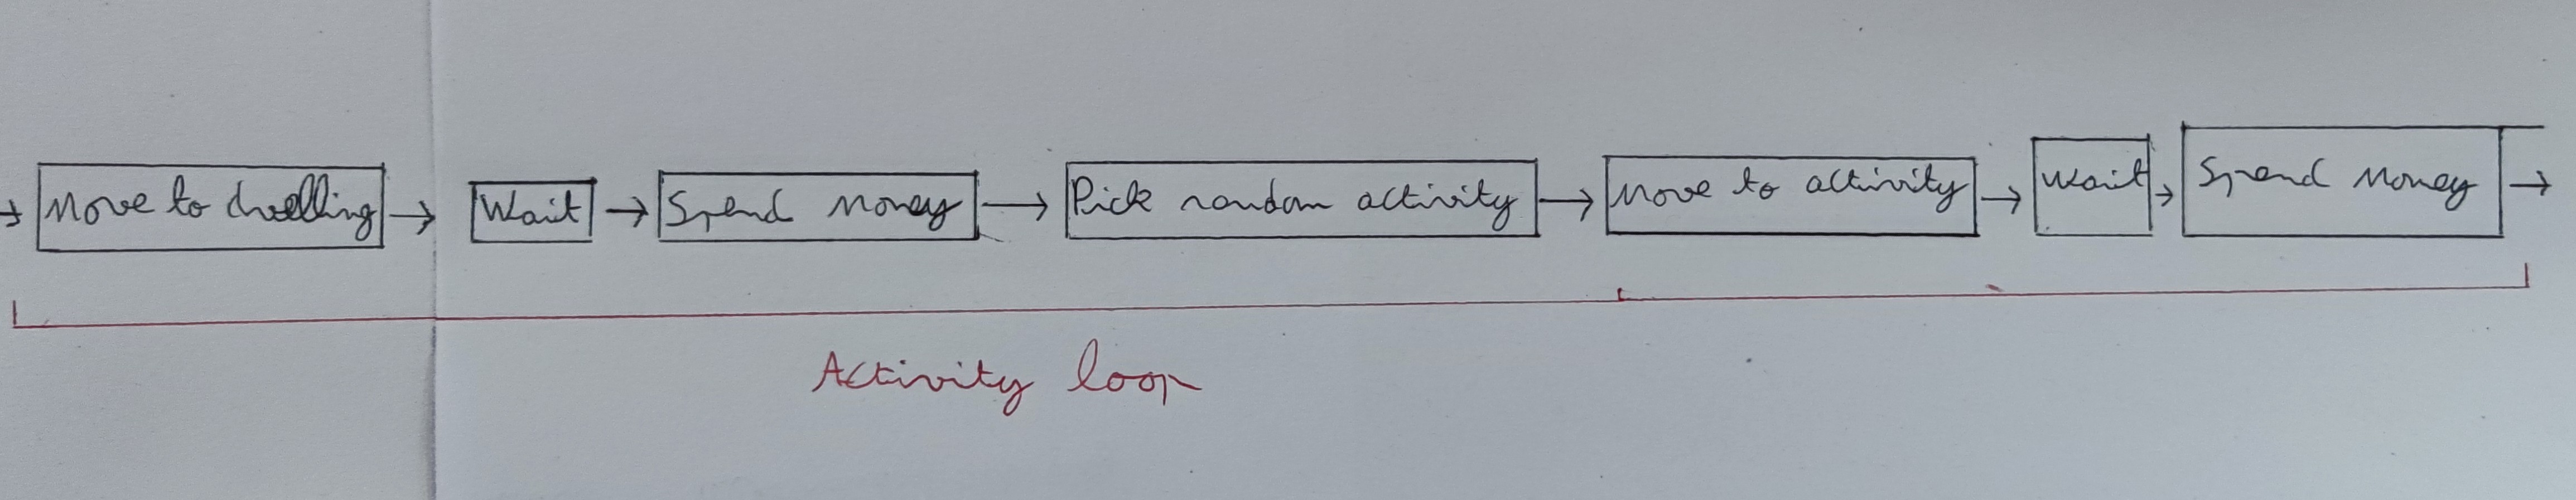 Move to dwelling
Wait
Spend money
Pick random activity
Move to activity
Wait
Spend money
Activity loop